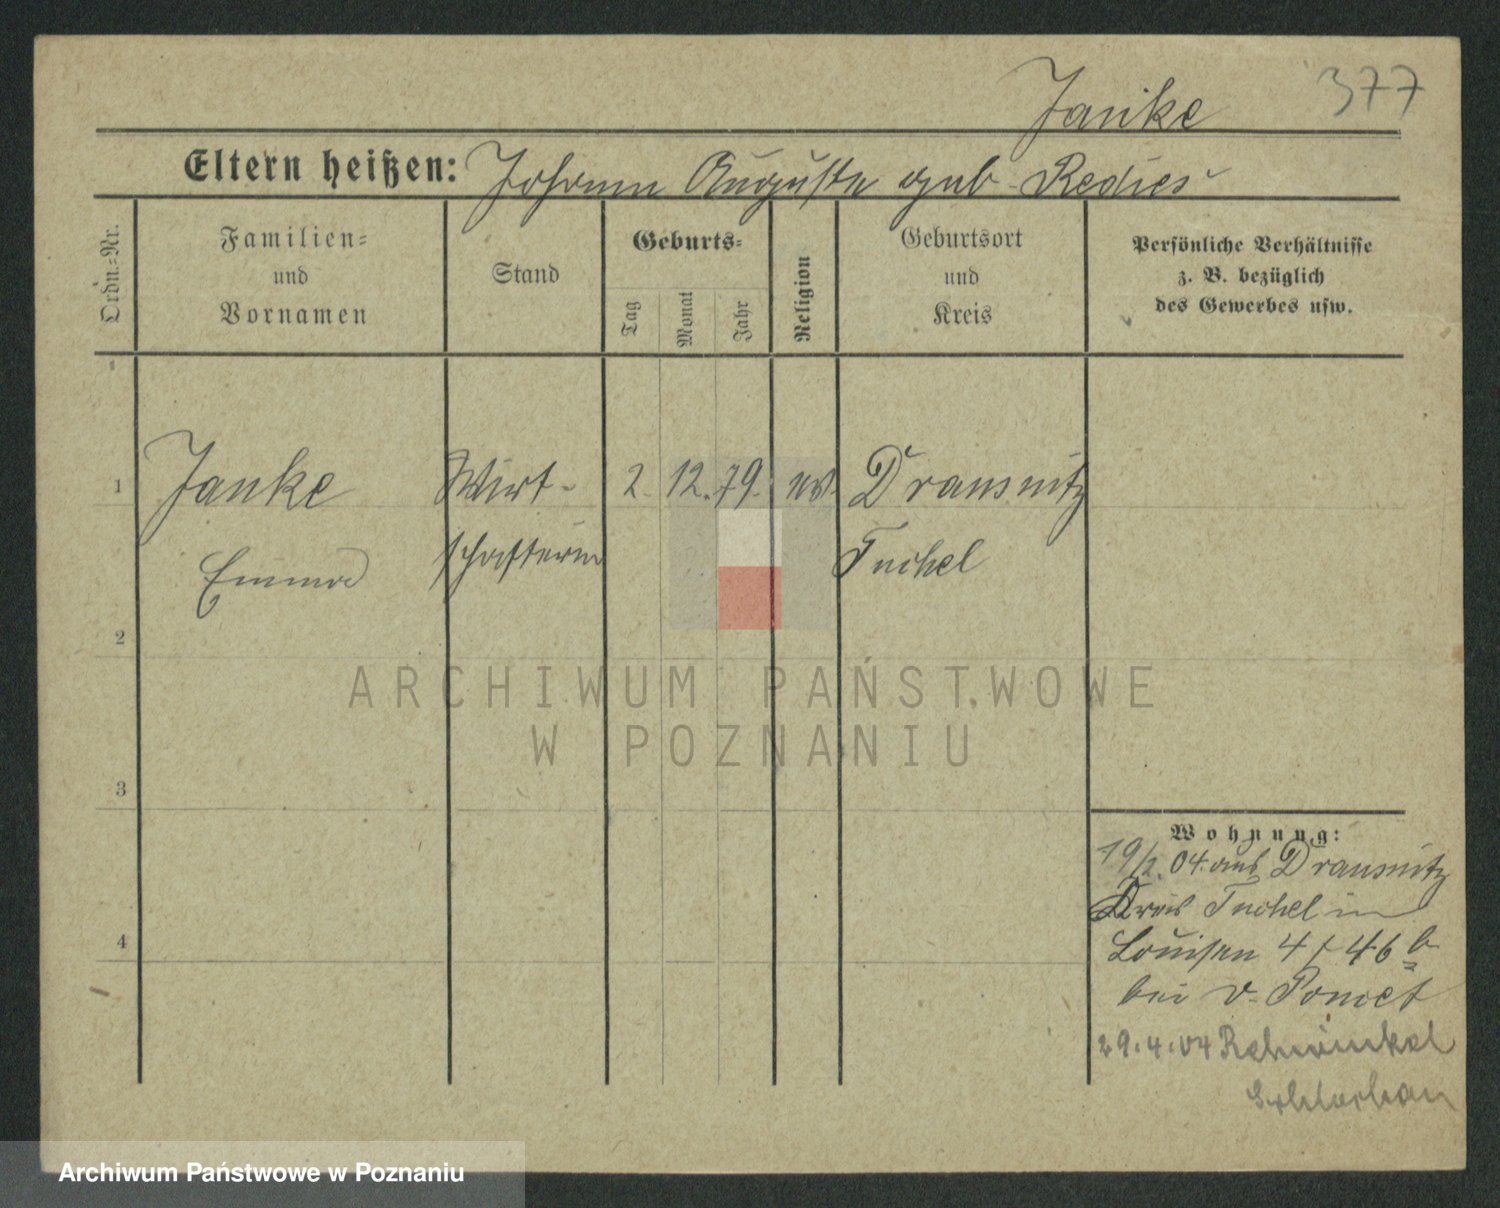 377
Janke
Eltern heißen: Johann Auguste geb. Redies
Ordn.-Nr.
Familien-
und
Vornamen
Stand
Geburts-
Tag
Monat
Jahr
Religion
Geburtsort
und
Kreis
Persönliche Verhältnisse
z. B. bezüglich
des Gewerbes usw.
1 Janke Wirt- 2. 12. 79. ev. Drausnitz
Emma schafterin Tuchel
2
3
4
ARCHIWUM PAŃSTWOWE
W POZNANIU
Wohnung:
19/2. 04. aus Drausnitz
Kreis Tuchel in
Louisen 4 / 46 b
bei v.
29.4.04
Archiwum Państwowe w Poznaniu